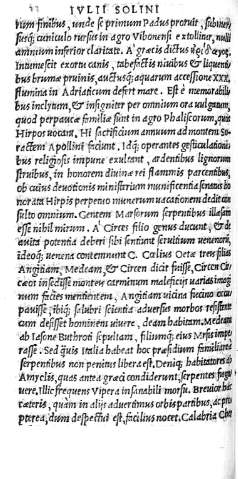 IVLII SOLINI
rum finibus, unde se primum Padus proruit, subinter
susq; cuniculo rursus in agro Vibonensi extollitur, nulli
amnium inferior claritate. A græcis dictus
Intumescit exortu canis, tabefactis niuibus & liquentibus
brumæ pruinis, auctusq; aquarum accessione XXX.
flumina in Adriaticum defert mare. Est & memorabilibus
inclytum, & insigniter per omnium ora uulgatum,
quod perpaucæ familiæ sunt in agro Phaliscorum, quis
Hirpos uocant. Hi sacrificium annuum ad montem So-
ractem Apollini faciunt. Idq; operantes gesticulationi
bus religiosis impune exultant, ardentibus lignorum
struibus, in honorem diuinæ rei flammis parcentibus,
ob cuius deuotionis ministerium munificentia senatus ho
norata Hirpis perpetuo munerum uacationem dedit con
sulto omnium. Gentem Marsorum serpentibus illæsam
esse nihil mirum. A Circes filio genus ducunt, & de
auita potentia deberi sibi sentiunt seruitium uenenorũ,
ideoq; uenena contemnunt C. Cælius Oetæ tres filias
Angitiam, Medeam, & Circen dicit fuisse, Circen Cir
cæos insedisse montes, carminum maleficijs uarias imagi
num facies mentientem, Angitiam uicina fucino occu
pauisse, ibiq; salubri scientia aduersus morbos resisten
tem dedisset hominem uiuere, deam habitam. Medeam
ab Iasone Buthroti sepultam, filiumq; eius Marsis impe
rasse. Sed quis Italia habeat hoc præsidium familiare, a
serpentibus non penitus libera est. Deniq; habitatores ab
Amyclis, quas antea græci condiderunt, serpentes fuga
uere, Illic frequens Vipera insanabili morsu. Breuior hæc
cæteris, quàm in alijs aduertimus orbis partibus, ac pro
pterea, dum despectui est, facilius nocet. Calabria Cher